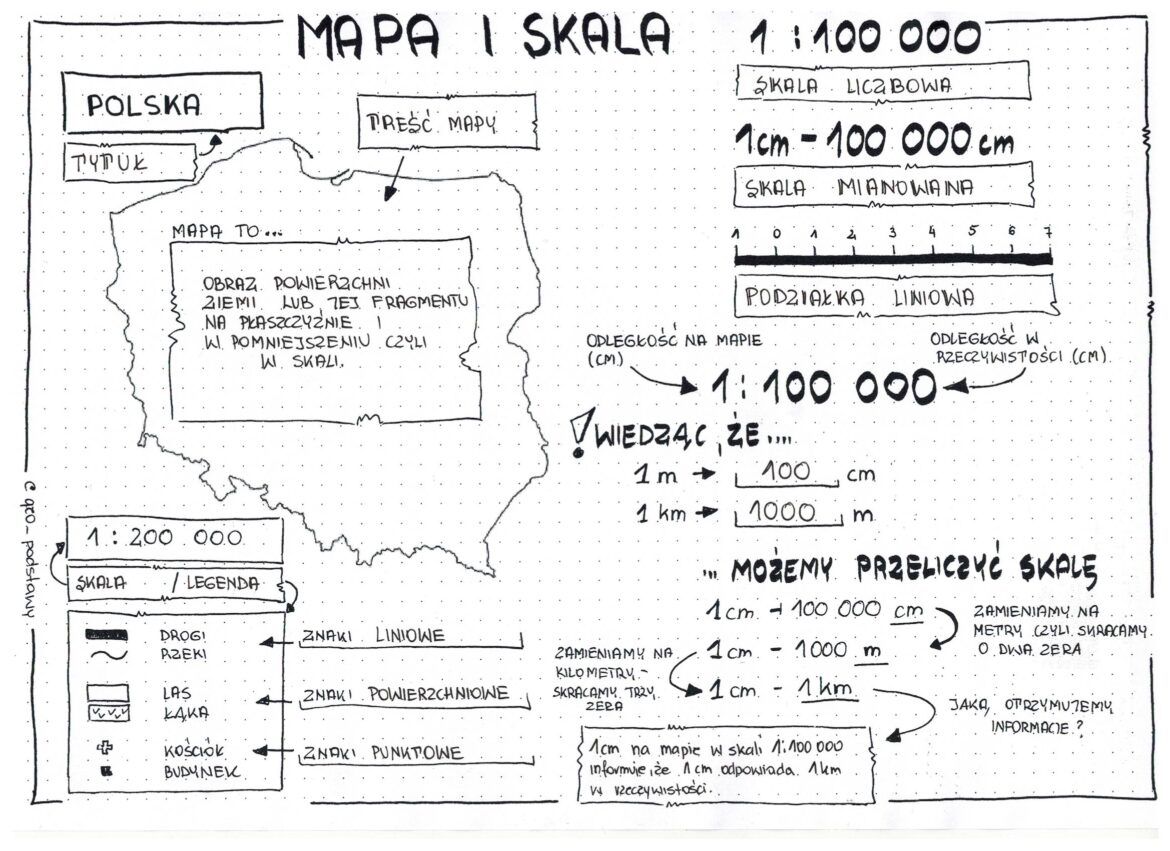 MAPA I SKALA
POLSKA
TYTUŁ
TREŚĆ MAPY
MAPA TO...
OBRAZ POWIERZCHNI
ZIEMI LUB JEJ FRAGMENTU
NA PŁASZCZYŹNIE I
W POMNIEJSZENIU CZYLI
W SKALI.
1 : 200 000
SKALA / LEGENDA
DROGI
RZEKI
LAS
ŁĄKA
KOŚCIÓŁ
BUDYNEK
ZNAKI LINIOWE
ZNAKI POWIERZCHNIOWE
ZNAKI PUNKTOWE
© gEO-podstawy
1 : 100 000
SKALA LICZBOWA
1cm - 100 000 cm
SKALA MIANOWANA
1 0 1 2 3 4 5 6 7
PODZIAŁKA LINIOWA
ODLEGŁOŚĆ NA MAPIE
(CM)
ODLEGŁOŚĆ W
RZECZYWISTOŚCI (CM)
1 : 100 000
! WIEDZĄC, ŻE....
1 m → 100 cm
1 km → 1000 m
... MOŻEMY PRZELICZYĆ SKALĘ
1 cm - 100 000 cm
1 cm - 1000 m
1 cm - 1 km
ZAMIENIAMY NA
METRY CZYLI SKRACAMY
O DWA ZERA
ZAMIENIAMY NA
KILOMETRY -
SKRACAMY TRZY
ZERA
JAKĄ OTRZYMUJEMY
INFORMACJE?
1cm na mapie w skali 1:100 000
informuje, że 1 cm odpowiada 1km
w rzeczywistości.